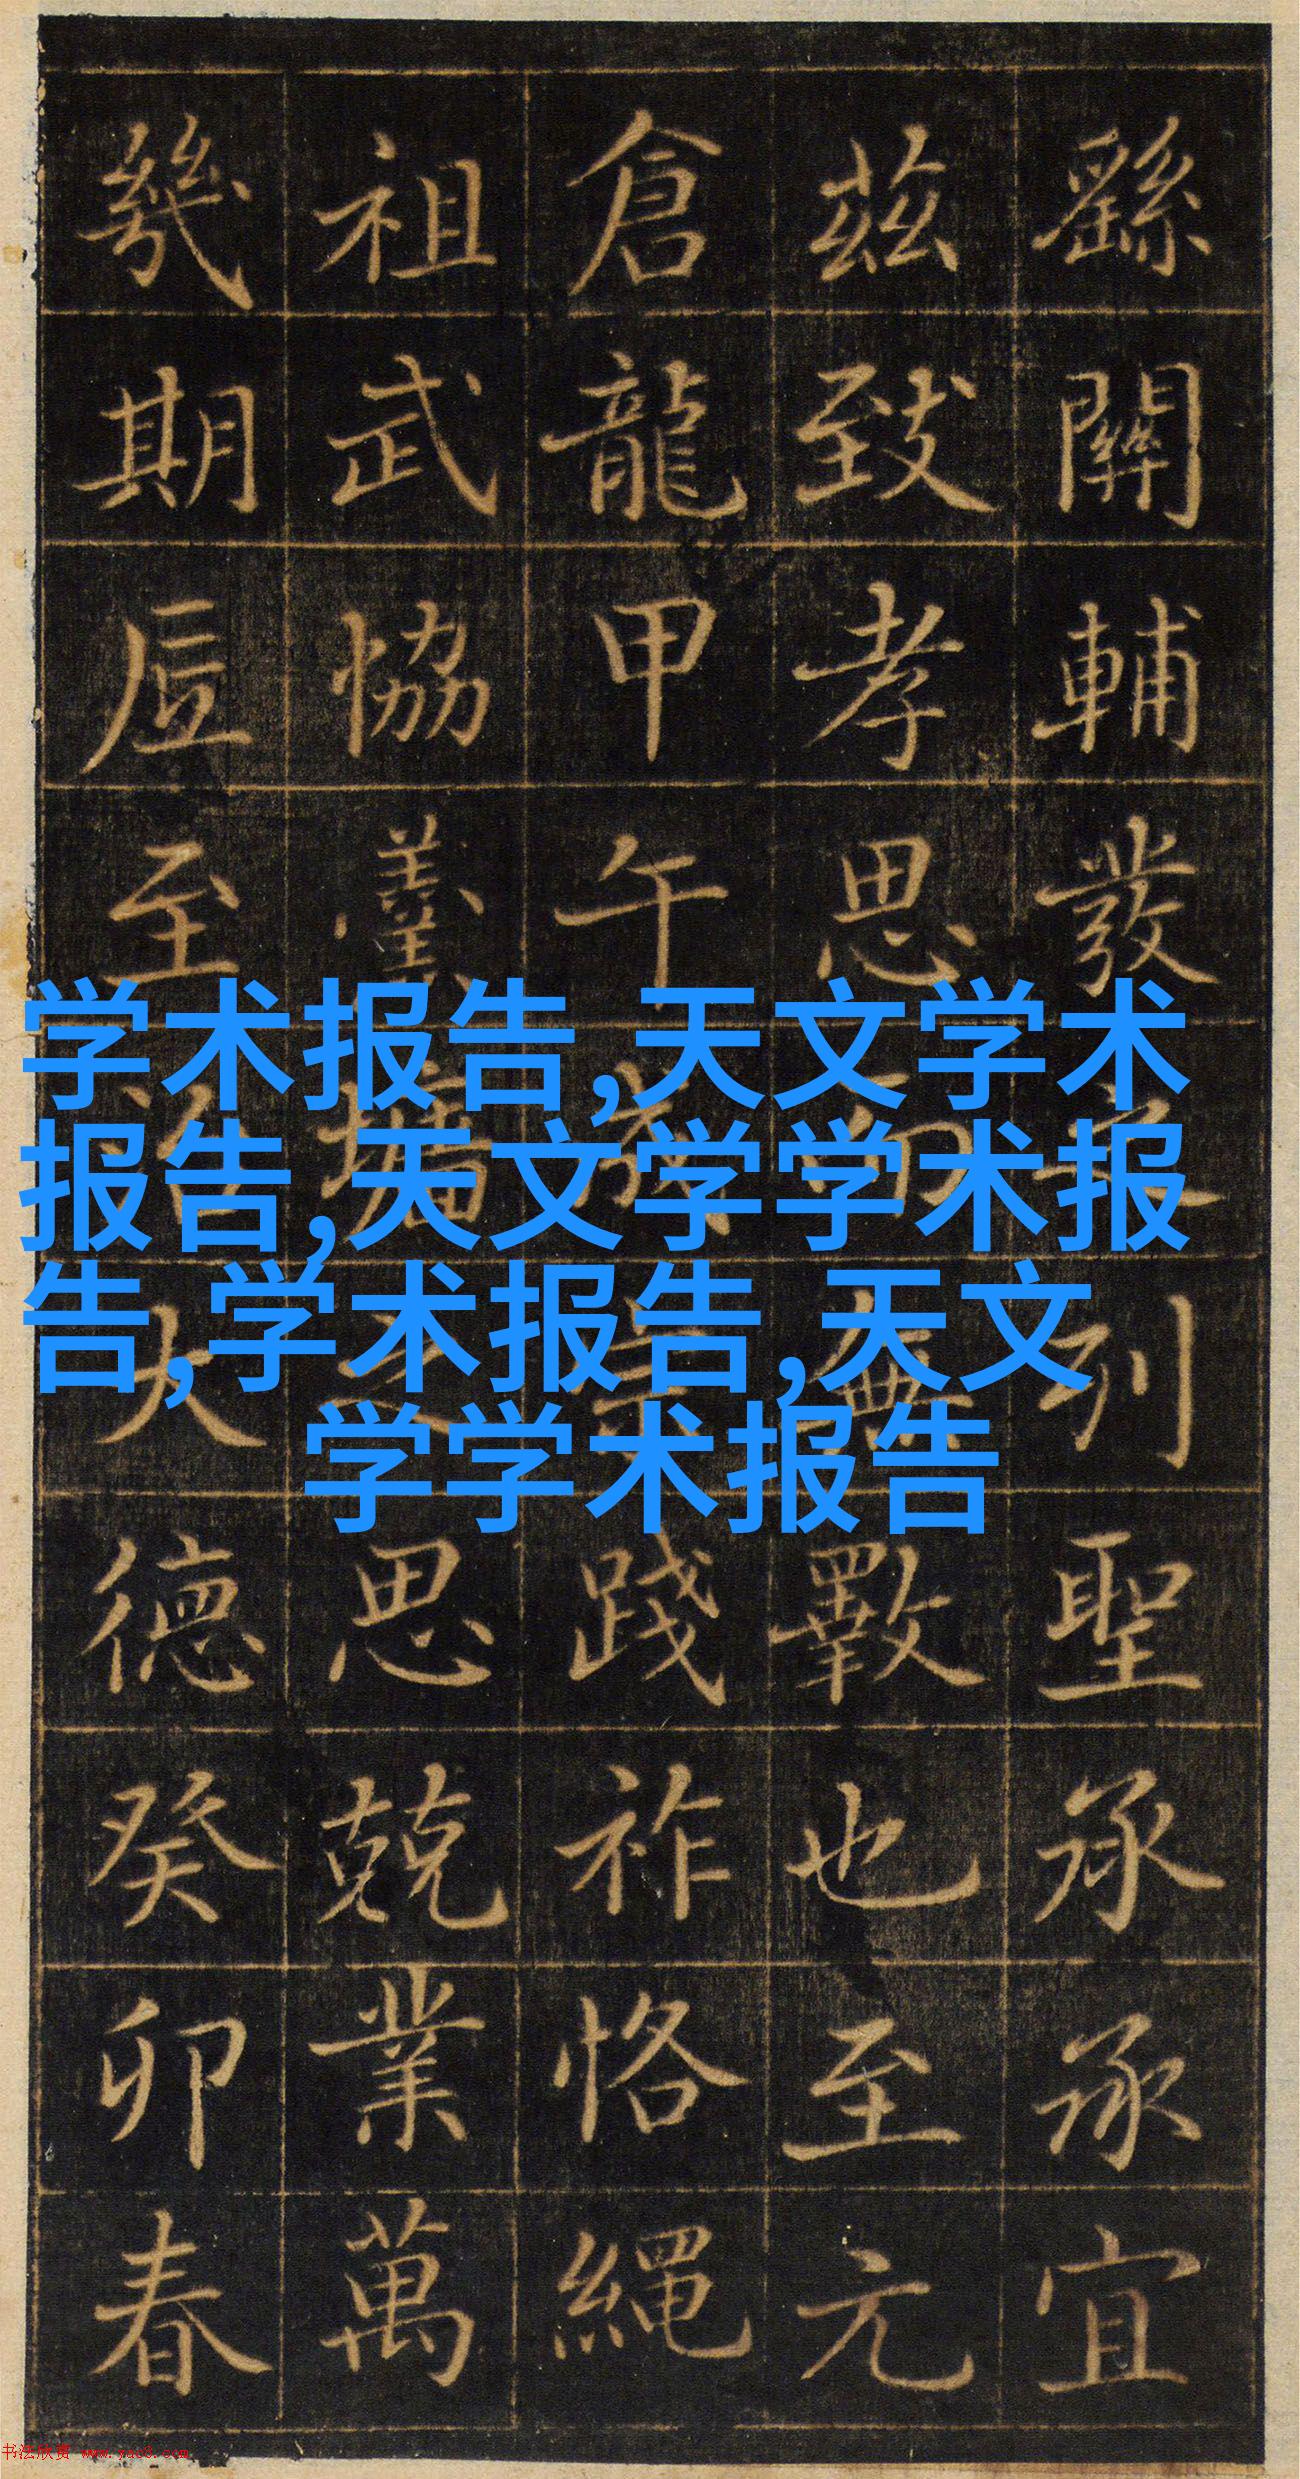 繇關輔發列聖承承宜
茲致孝思而無斁也至元
倉龍甲午踐祚恪繩
祖武協羹墻之思兢業萬
幾期底至治大德癸卯春
学术报告,天文学术
报告,天文学学术报
告,学术报告,天文
学学术报告
书法欣赏 www.yac8.com